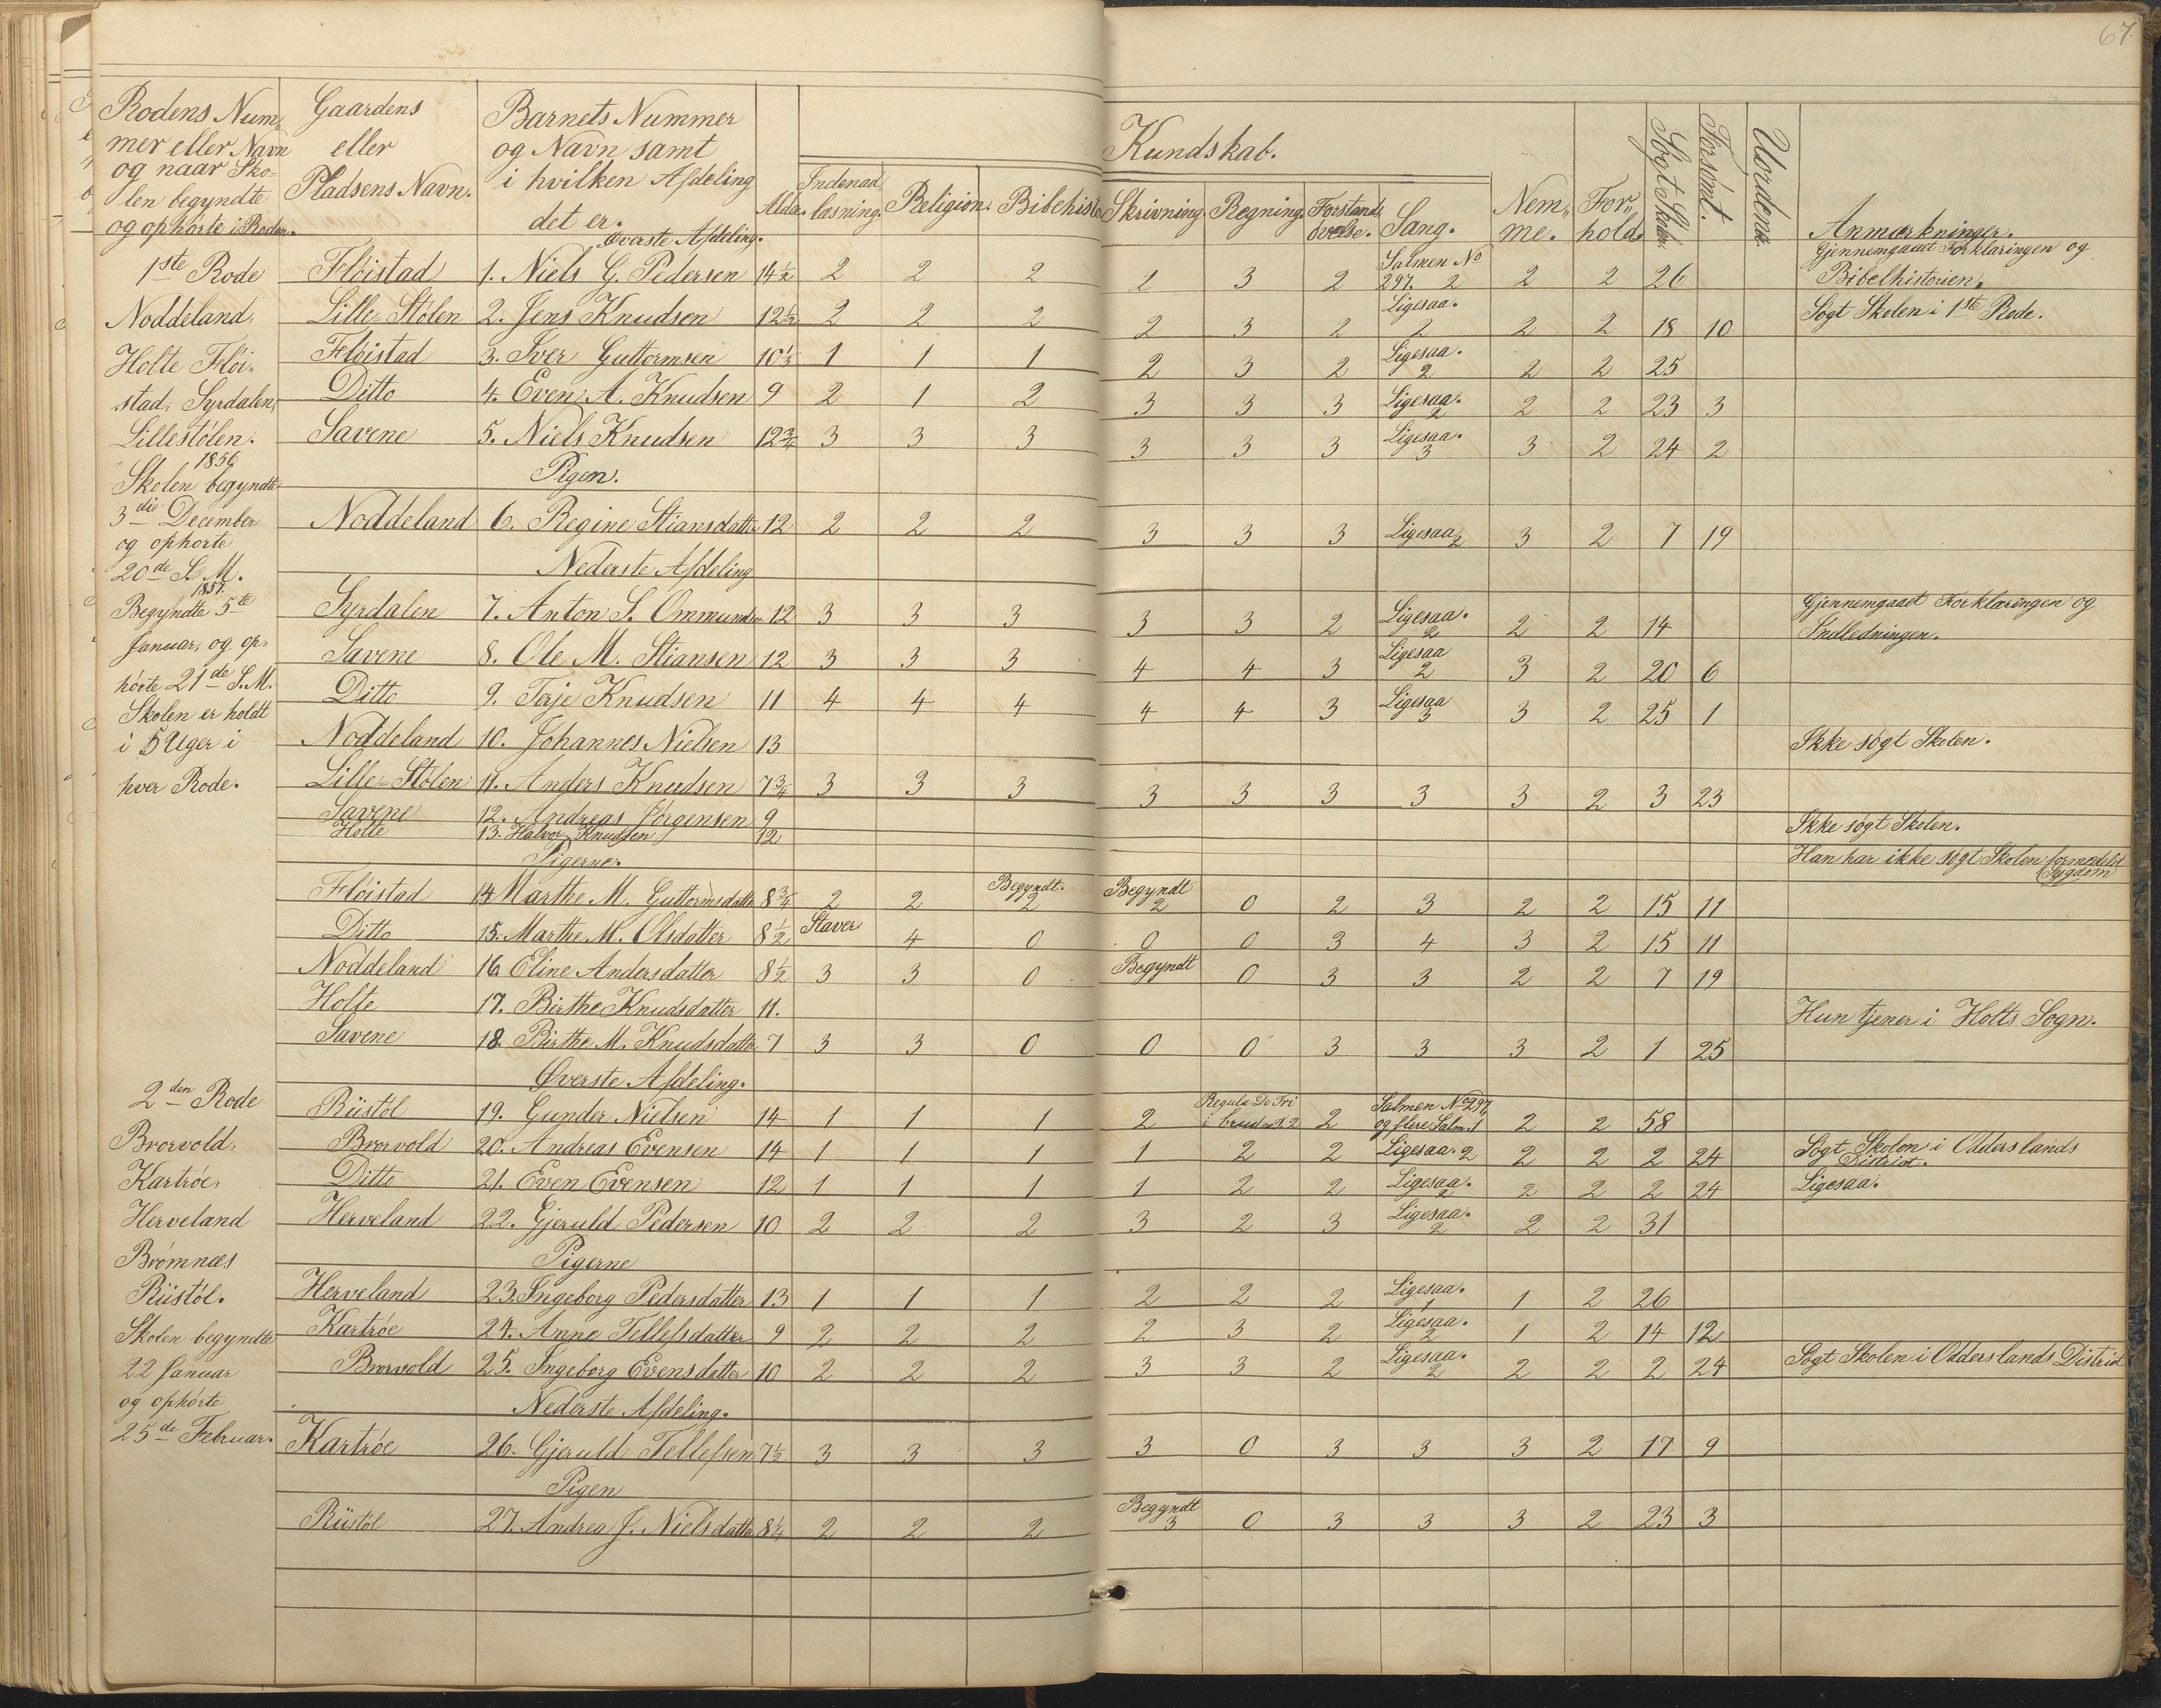 67.
Rodens Num-
mer eller Navn
og naar Sko-
len begyndte
og ophørte i Roden.
Gaardens
eller
Pladsens Navn.
Barnets Nummer
og Navn samt
i hvilken Afdeling
det er.
Alder.
Kundskab.
Indenad
læsning.
Religion.
Bibelhist.
Skrivning.
Regning.
Forstands
øvelse.
Sang.
Nem-
me.
For-
hold.
Søgt Skolen.
Forsømt.
Uordens.
Anmærkninger.
1ste Rode
Noddeland,
Holte Fløi-
stad, Syrdalen,
Lillestølen.
1856
Skolen begyndte
3die December
og ophørte
20de S. M.
1857.
Begyndte 5te
Januar, og op-
hørte 21de S. M.
Skolen er holdt
i 5 Uger i
hver Rode.
Øverste Afdeling.
Fløistad 1. Niels G. Pedersen 14½ 2 2 2 2 3 2 Salmen No 297. 2 2 2 26 Gjennemgaaet Forklaringen og Bibelhistorien.
Lille-Stølen 2. Jens Knudsen 12½ 2 2 2 2 3 2 Ligesaa. 2 2 2 18 10 Søgt Skolen i 1ste Rode.
Fløistad 3. Iver Guttormsen 10⅓ 1 1 1 2 3 2 Ligesaa. 2 2 2 25
Ditto 4. Even A. Knudsen 9 2 1 2 3 3 3 Ligesaa. 2 2 2 23 3
Savene 5. Niels Knudsen 12¾ 3 3 3 3 3 3 Ligesaa. 3 3 2 24 2
Pigen.
Noddeland 6. Regine Stiansdatter 12 2 2 2 3 3 3 Ligesaa 2 3 2 7 19
Nederste Afdeling
Syrdalen 7. Anton S. Ommundsen 12 3 3 3 3 3 2 Ligesaa. 2 2 2 14 Gjennemgaaet Forklaringen og Indledningen.
Savene 8. Ole M. Stiansen 12 3 3 3 4 4 3 Ligesaa 2 3 2 20 6
Ditto 9. Terje Knudsen 11 4 4 4 4 4 3 Ligesaa 3 3 2 25 1
Noddeland 10. Johannes Nielsen 13 Ikke søgt Skolen.
Lille-Stølen 11. Anders Knudsen 7¾ 3 3 3 3 3 3 3 3 2 3 23
Savene 12. Andreas Jørgensen 9 Ikke søgt Skolen.
Holte 13. Halvor Knudsen 12 Han har ikke søgt Skolen formedelst Sygdom
Pigerne.
Fløistad 14 Marthe M. Guttormsdatter 8¾ 2 2 Begyndt. 2 Begyndt 2 0 2 3 2 2 15 11
Ditto 15. Marthe M. Olsdatter 8½ Staver 4 0 0 0 3 4 3 2 15 11
Noddeland 16 Eline Andersdatter 8½ 3 3 0 Begyndt 0 3 3 2 2 7 19
Holte 17. Birthe Knudsdatter 11. Hun tjener i Holts Sogn.
Savene 18. Birthe M. Knudsdatter 7 3 3 0 0 0 3 3 3 2 1 25
2den Rode
Brorvold,
Kartrøe,
Herveland
Brømnæs
Rüstøl.
Skolen begyndte
22 Januar
og ophørte
25de Februar.
Øverste Afdeling.
Rüstøl 19. Gunder Nielsen 14 1 1 1 2 Regula De Tri i brudne T. 2 2 Salmen No 297, og flere Salm. 1 2 2 58
Brorvold 20. Andreas Evensen 14 1 1 1 1 2 2 Ligesaa. 2 2 2 2 24 Søgt Skolen i Odderslands District.
Ditto 21. Even Evensen 12 1 1 1 1 2 2 Ligesaa. 2 2 2 2 24 Ligesaa.
Herveland 22. Gjeruld Pedersen 10 2 2 2 3 2 3 Ligesaa. 2 2 2 31
Pigerne
Herveland 23. Ingeborg Pedersdatter 13 1 1 1 2 2 2 Ligesaa. 1 1 2 26
Kartrøe 24. Anne Tellefsdatter 9 2 2 2 2 3 2 Ligesaa. 2 1 2 14 12
Brorvold 25. Ingeborg Evensdatter 10 2 2 2 3 3 2 Ligesaa. 2 2 2 2 24 Søgt Skolen i Odderslands District
Nederste Afdeling.
Kartrøe 26. Gjeruld Tellefsen 7½ 3 3 3 3 0 3 3 3 2 17 9
Pigen
Rüstøl 27. Andrea J. Nielsdatter 8¼ 2 2 2 Begyndt 3 0 3 3 3 2 23 3